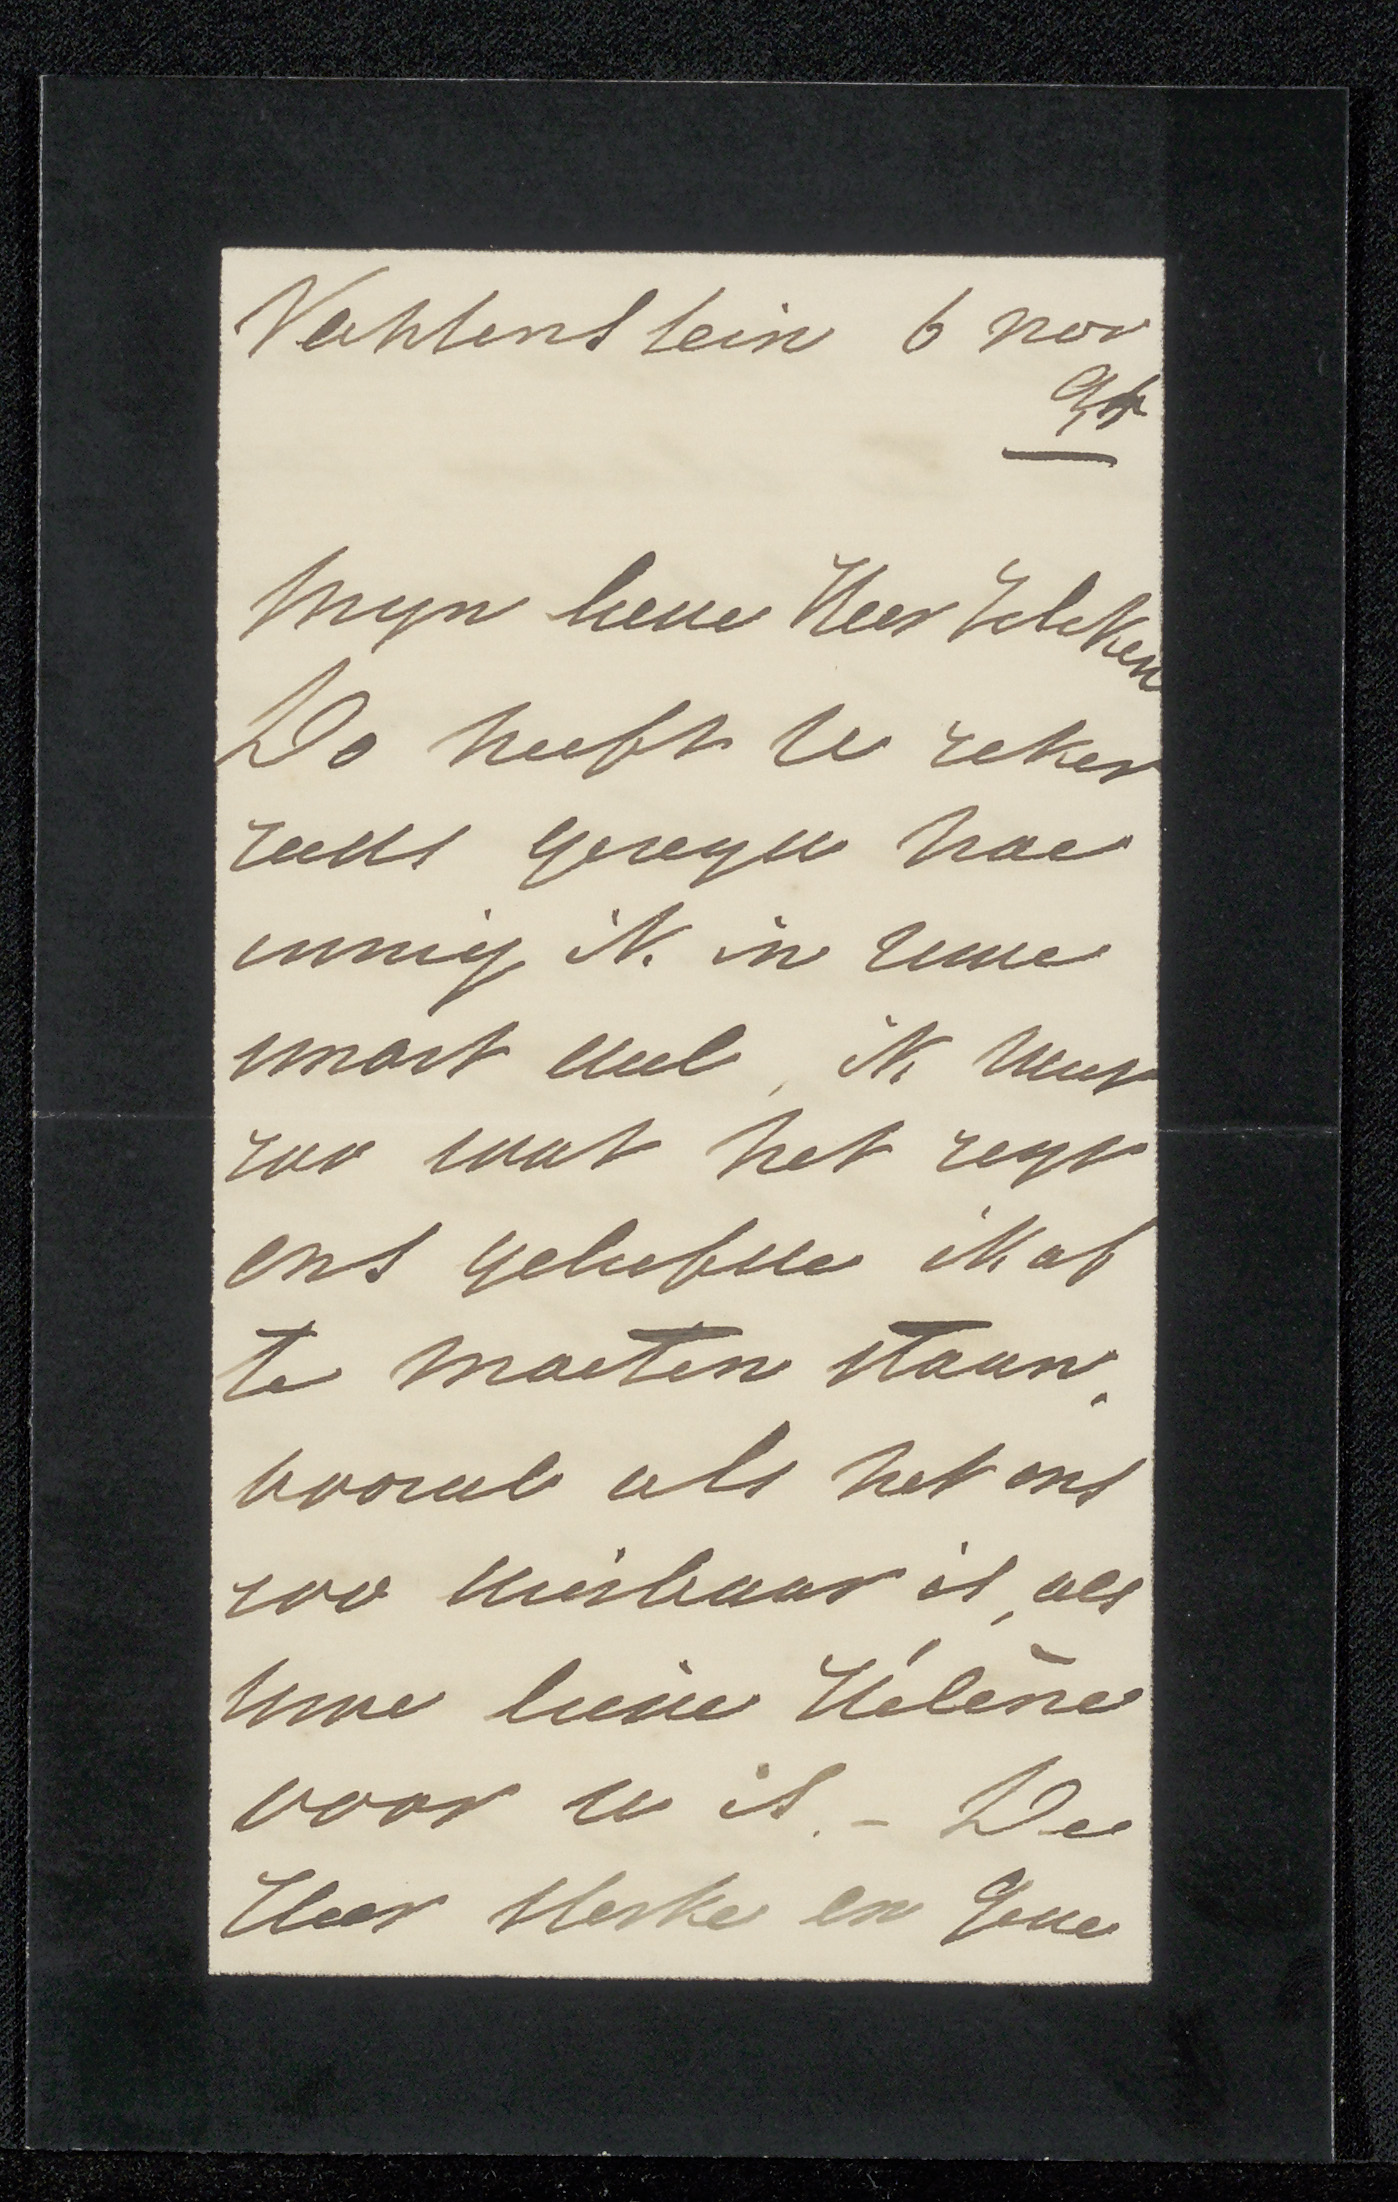 Vechtenstein 6 nov
94
Mijn lieve Heer Zilcken
Do heeft U zeker
reeds gezegd hoe
innig ik in Uwe
smart deel, ik weet
zoo wat het zegt
ons geliefde ik af
te moeten staan,
vooral als het ons
zoo dierbaar is, als
Uwe lieve Hélène
voor U is. - De
Heer Sterke en Goede